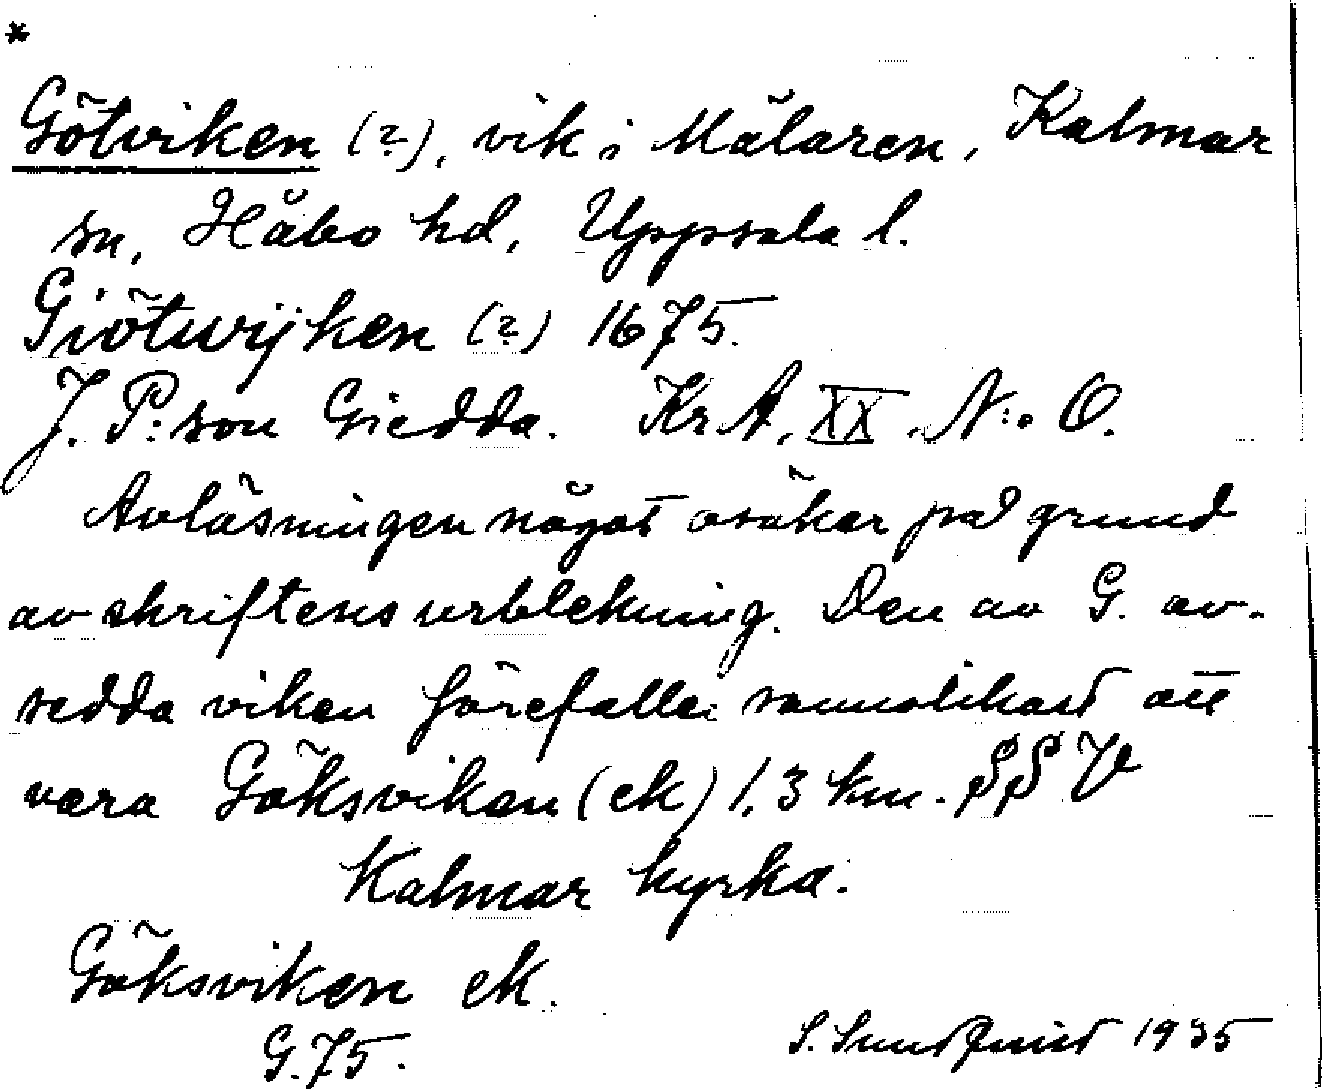 *
Götviken (?), vik i Mälaren, Kalmar
sn, Håbo hd, Uppsala l.
Giötwijken (?) 1675.
J. P:son Giedda. KrA, XX, N:o O.
Avläsningen något osäker på grund
av skriftens urblekning. Den av G. av-
sedda viken förefaller sannolikast att
vara Göksviken (ek) 1,3 km. SSV
Kalmar kyrka.
Göksviken ek.
G.75.
S. Sundquist 1935